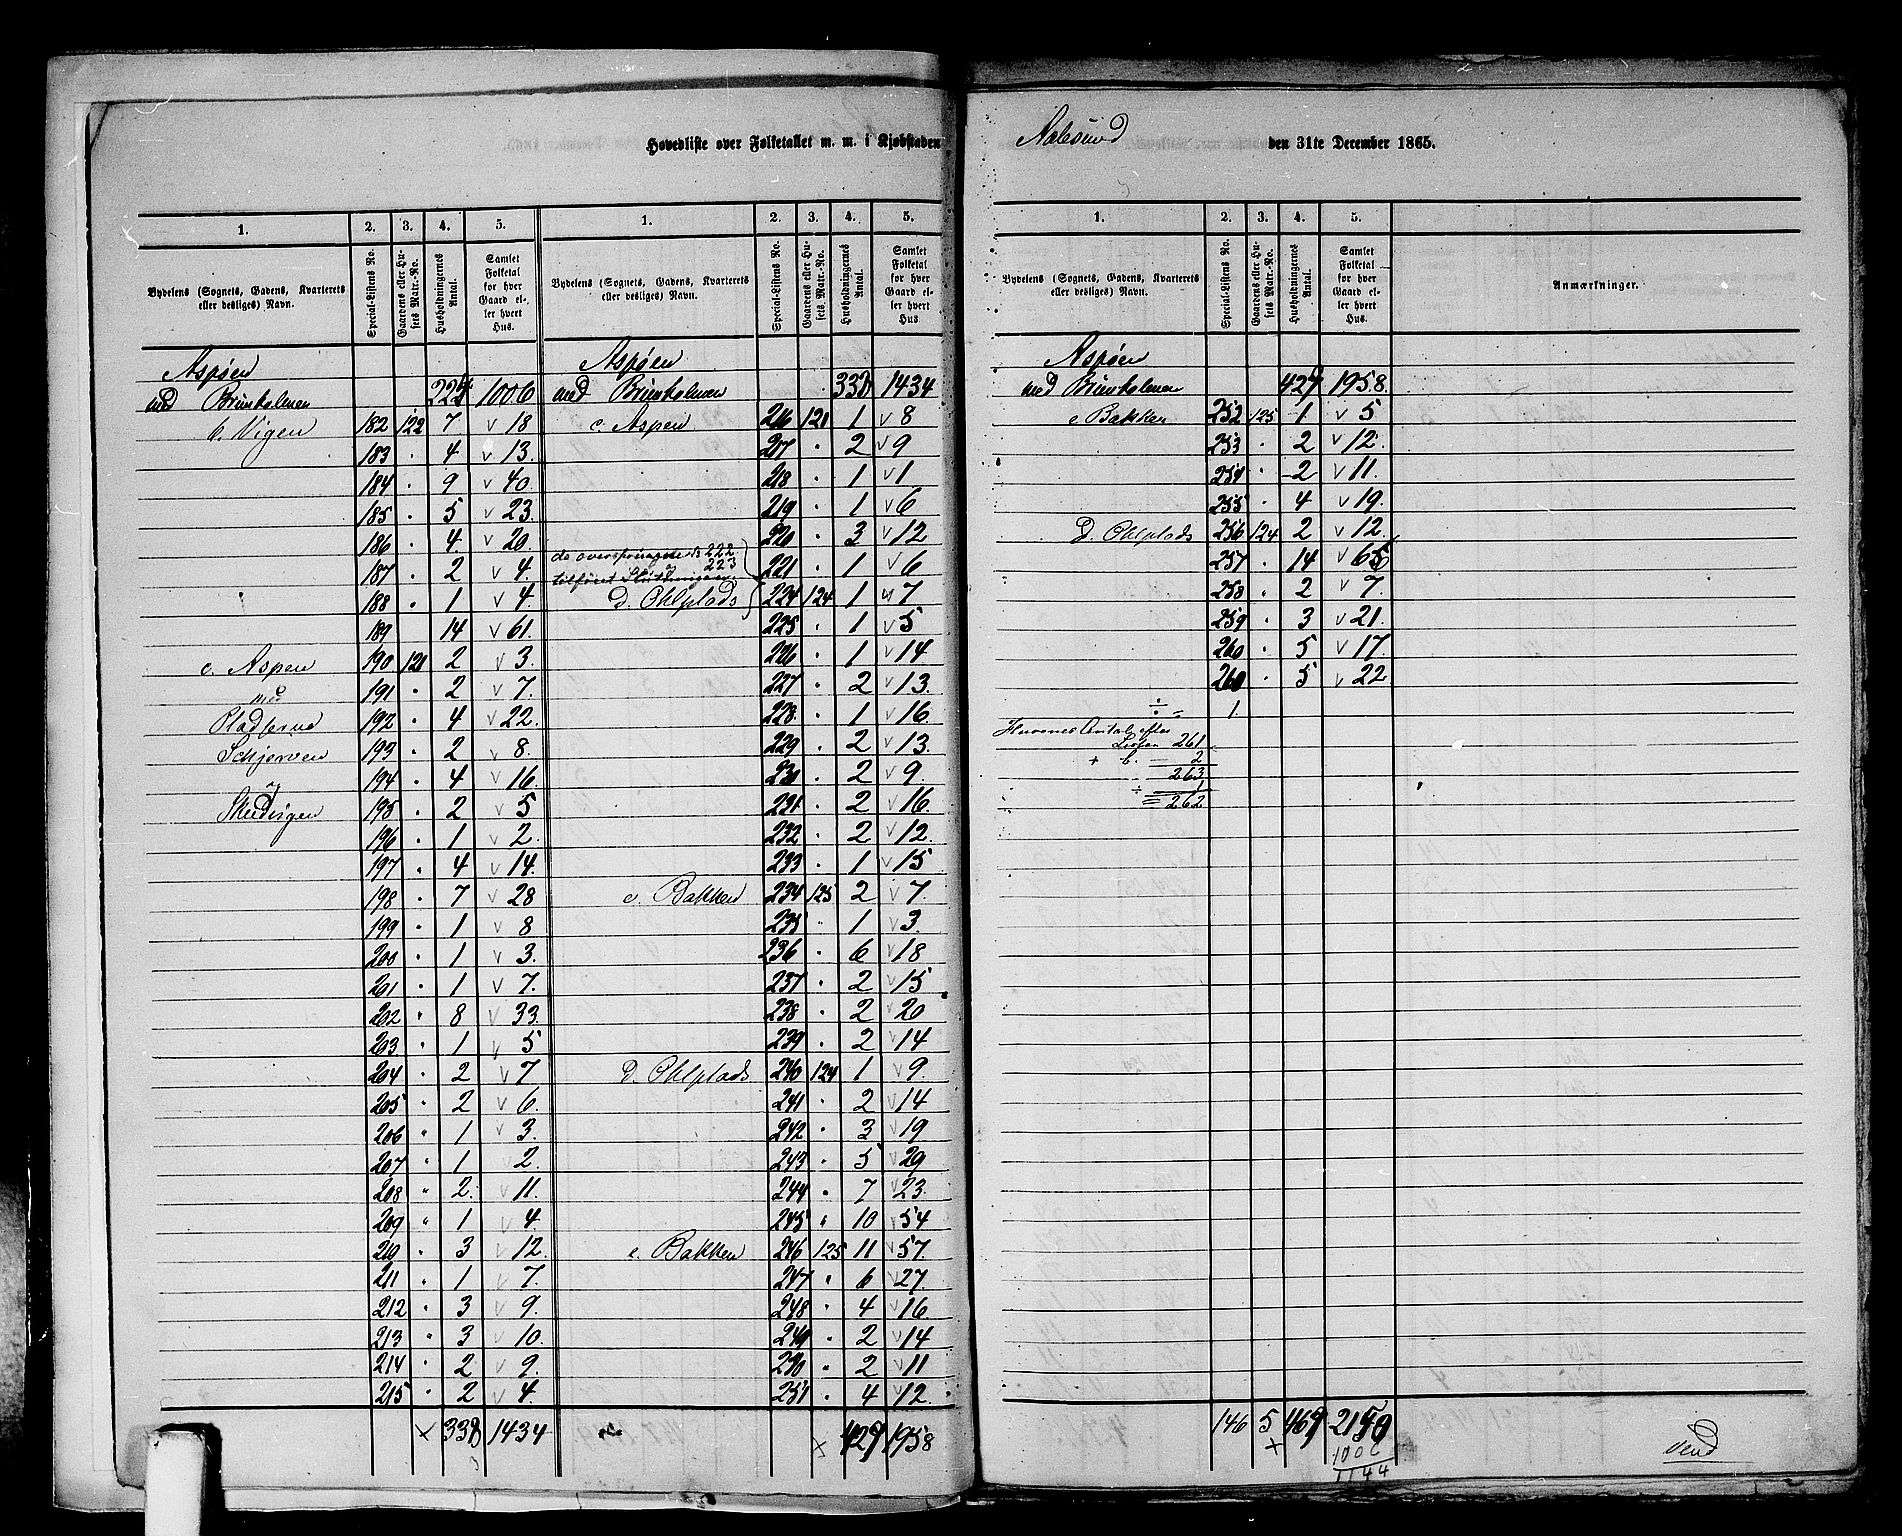 Hovedliste over Folketallet m. m. i Kjøbstaden Aalesund den 31te December 1865.
1. 2. 3. 4. 5. 1. 2. 3. 4. 5.
Bydelens (Sognets, Gadens, Kvarterets eller desliges) Navn. Special-Listens No. Gaardens eller Husets Matr.-No. Husholdningernes Antal. Samlet Folketal for hver Gaard eller hvert Hus.
Aspøen
med Brunholmen 1006
b. Vigen 182 122 7 v 18
183 " 4 v 13.
184 " 9 v 40
185 " 5 v 23.
186 " 4. v 20.
187 " 2 v 4.
188 " 1 v 4.
189 14 v 61.
c. Aspen 190 121 2 v 3.
med 191 " 2 v 7.
192 " 4 v 22.
Schjerven 193 " 2 v 8.
194 " 4 v 16
195 " 2 v 5
196 " 1 v 2.
197 " 4 v 14.
198 " 7 v 28
199 " 1 v 8
200 " 1 v 3.
201 " 1 v 7.
202 " 8 v 33.
203 " 1 v 5
204 " 2 v 7
205 " 2 v 6.
206 " 1 v 3.
207 " 1 v 2.
208 " 2. v 11.
209 " 1 v 4.
210 " 3 v 12.
211 " 1 v 7.
212 " 3 v 9.
213 " 3 v 10.
214 " 2 v 9.
215 " 2 v 4.
1434
Bydelens (Sognets, Gadens, Kvarterets eller desliges) Navn. Special-Listens No. Gaardens eller Husets Matr.-No. Husholdningernes Antal. Samlet Folketal for hver Gaard eller hvert Hus.
Aspøen
med Brunholmen 1434
c. Aspen 216 121 1 v 8
217 " 2 v 9
218 " 1 v 1
219 " 1 v 6
220 " 3 v 12
de oversprungne No 222
221 " 1 v 6
223
D. Ohlplads 224 124 1 v 7
225 " 1 v 5
226 " 1 v 14
227 " 2 v 13.
228. " 1 v 16
229 " 2 v 13.
230 " 2 v 9.
231. " 2 v 16
232 " 2 v 12.
233 " 1 v 15
e. Bakken 234 125 2 v 7.
235 " 1 v 3.
236 " 6 v 18
237 " 2 v 15
238 " 2 v 20
239 " 2 v 14
D. Ohlplads 240 124 1 v 9.
241 " 2 v 14
242 " 3 v 19
243 " 5 v 29
244 " 7 v 23.
245 " 10 v 54
e. Bakken 246 125 11 v 57.
247 " 6 v 27
248 " 4 v 16
249 " 2 v 14
250 " 2 v 11
251 " 4 v 12.
1958
1. 2. 3. 4. 5.
Bydelens (Sognets, Gadens, Kvarterets eller desliges) Navn. Special-Listens No. Gaardens eller Husets Matr.-No. Husholdningernes Antal. Samlet Folketal for hver Gaard eller hvert Hus. Anmærkninger.
Aspøen
med Brunholmen 1958.
e Bakken 252 125 1 v 5
253 " 2 v 12.
254 " 2 v 11.
255 " 4 v 19.
D. Ohlplads 256 124 2 v 12.
257 " 14 v 65
258 " 2 v 7.
259 " 3 v 21.
260 " 5 v 17.
260 " 5 v 22
÷ = 1.
Husenes Antal efter
Listen 261
+ b. = 2
= 263
÷ 1
= 262
146 5
1006
1144
vend